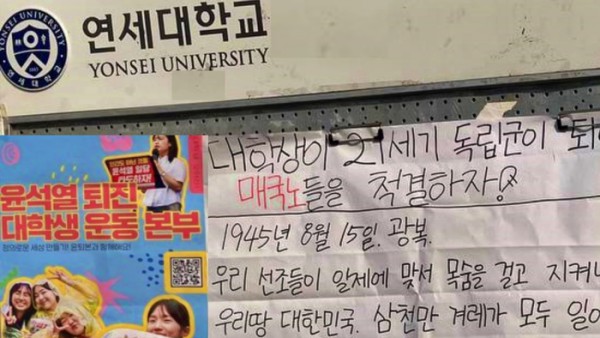 YONSEI UNIVERSITY
연세대학교
연세대학교
YONSEI UNIVERSITY
윤석열 일당
타도하자!
윤석열 퇴진
대학생 운동 본부
대학생이 21세기 독립군이
매국노들을 척결하자!
1945년 8월 15일. 광복.
우리 선조들이 일제에 맞서 목숨을 걸고 지켜
우리땅 대한민국. 삼천만 겨레가 모두